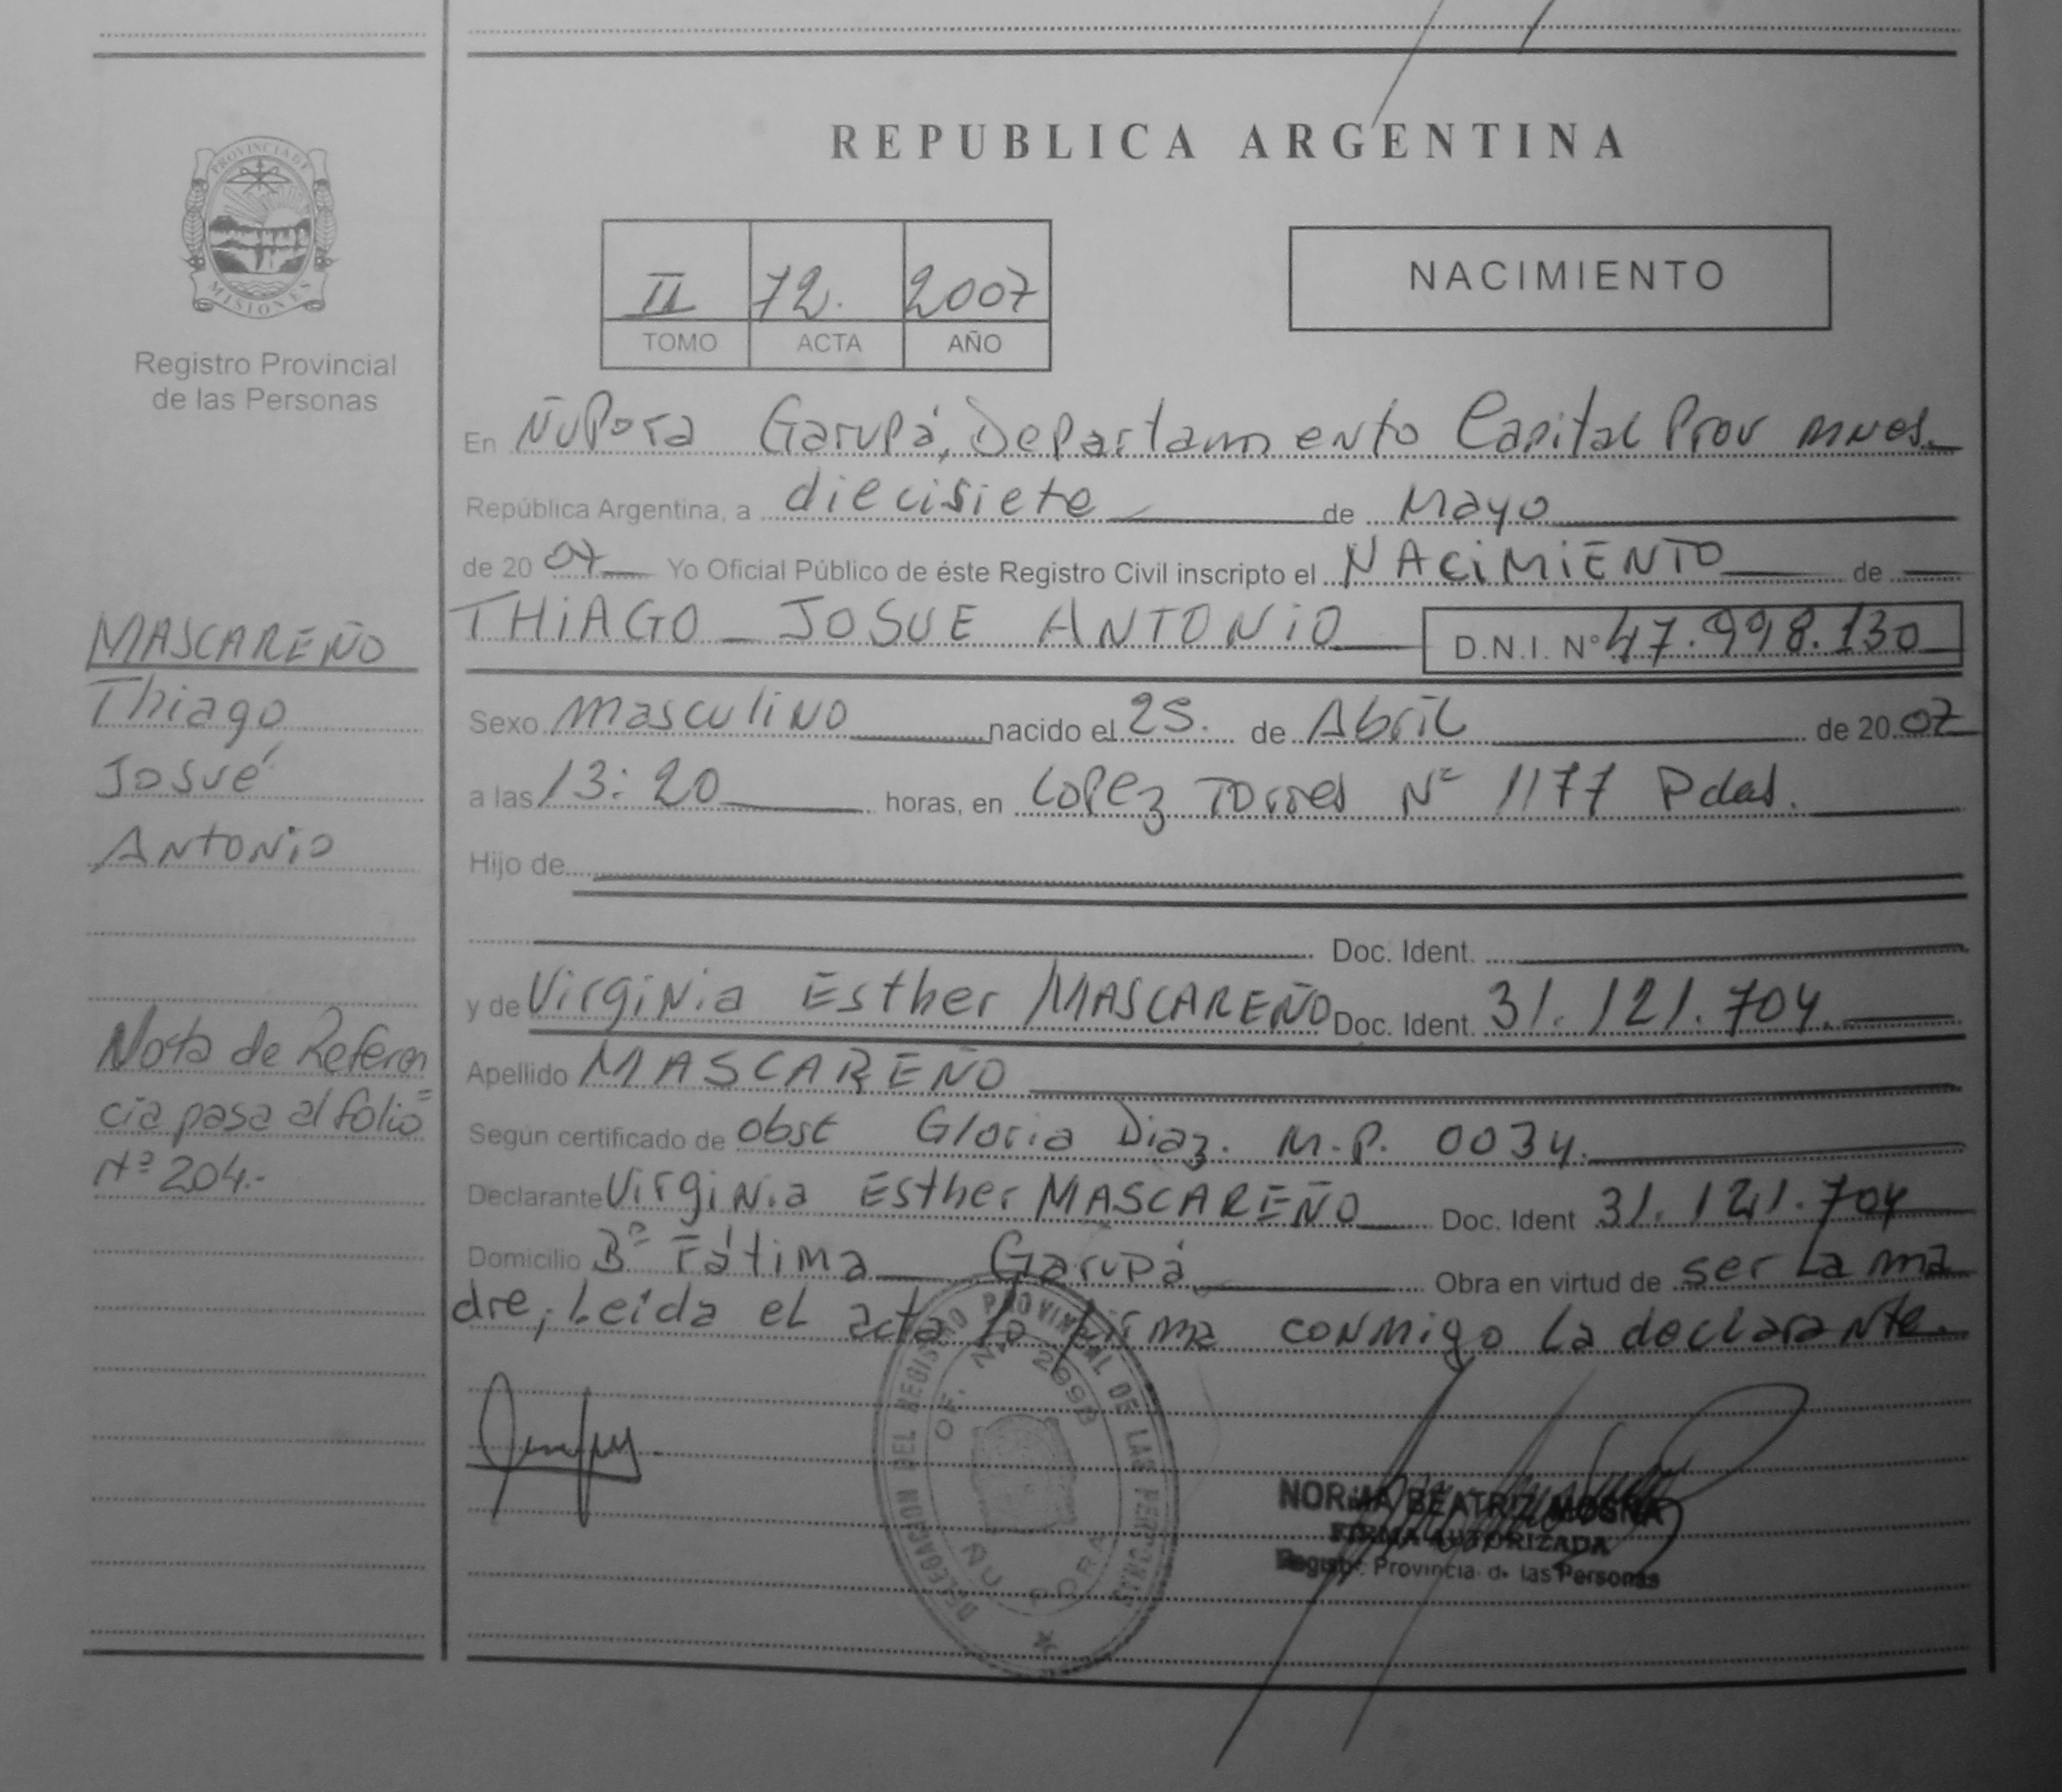 REPUBLICA ARGENTINA
PROVINCIA DE
MISIONES
Registro Provincial
de las Personas
II 72. 2007
TOMO ACTA AÑO
NACIMIENTO
En ÑuPora Garupá, Departamento Capital Prov mnes.
República Argentina, a diecisiete de Mayo
de 2007 Yo Oficial Público de éste Registro Civil inscripto el NACIMIENTO de
THIAGO JOSUE ANTONIO D.N.I. Nº 47.998.130
MASCAREÑO
Thiago
Josué
Antonio
Sexo masculino nacido el 25. de Abril de 2007
a las 13:20 horas, en Lopez Torres Nº 1177 Pdas.
Hijo de
Doc. Ident.
y de Virginia Esther MASCAREÑO Doc. Ident. 31.121.704.
Apellido MASCAREÑO
Según certificado de obst Gloria Diaz. M.P. 0034.
Declarante Virginia Esther MASCAREÑO Doc. Ident 31.121.704
Domicilio Bº Fátima Garupá Obra en virtud de ser la ma
dre, Leída el acta la firma conmigo la declarante.
Nota de Referen
cia pasa al folio
Nº 204.-
DELEGACION DEL REGISTRO PROVINCIAL DE LAS PERSONAS
OF. N. 2998
ÑU PORA
NORMA BEATRIZ
FIRMA AUTORIZADA
Registr. Provincia. d. las Personas